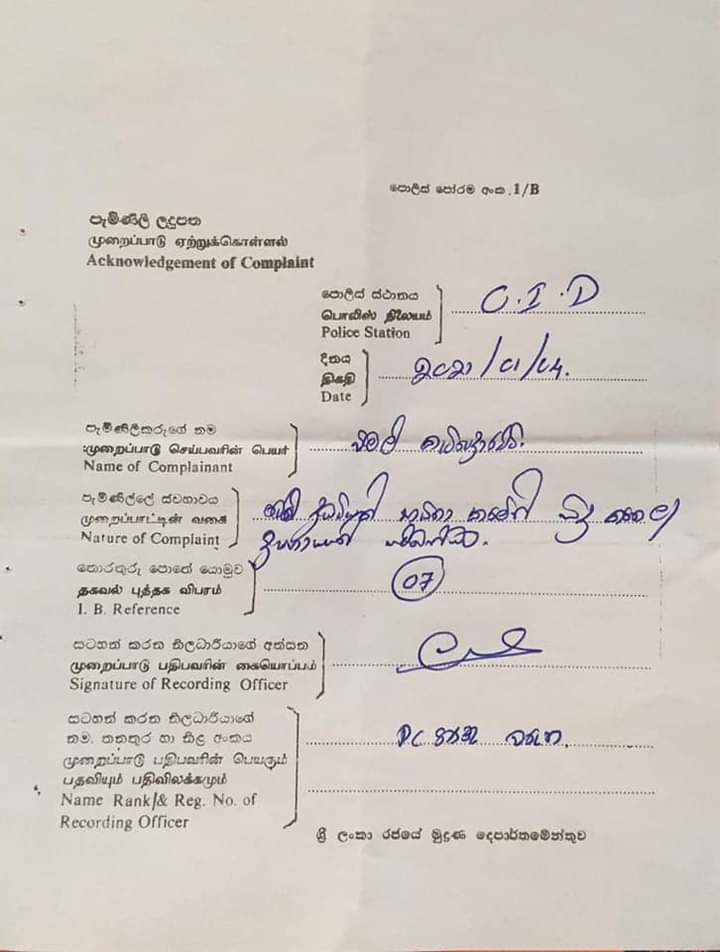 පොලිස් පෝරම අංක 1/B
පැමිණිලි ලදුපත
முறைப்பாடு ஏற்றுக்கொள்ளல்
Acknowledgement of Complaint
පොලිස් ස්ථානය
பொலிஸ் நிலையம்
Police Station
C.I.D
දිනය
திகதி
Date
2021/01/04.
පැමිණිලිකරුගේ නම
முறைப்பாடு செய்பவரின் பெயர்
Name of Complainant
පැමිණිල්ලේ ස්වභාවය
முறைப்பாட்டின் வகை
Nature of Complaint
කරමින් සිදු කළ
තොරතුරු පොතේ යොමුව
தகவல் புத்தக விபரம்
I. B. Reference
07
සටහන් කරන නිලධාරියාගේ අත්සන
முறைப்பாடு பதிபவரின் கையொப்பம்
Signature of Recording Officer
සටහන් කරන නිලධාරියාගේ
නම, තනතුර හා නිළ අංකය
முறைப்பாடு பதிபவரின் பெயரும்
பதவியும் பதிவிலக்கமும்
Name Rank & Reg. No. of
Recording Officer
PC
ශ්‍රී ලංකා රජයේ මුද්‍රණ දෙපාර්තමේන්තුව